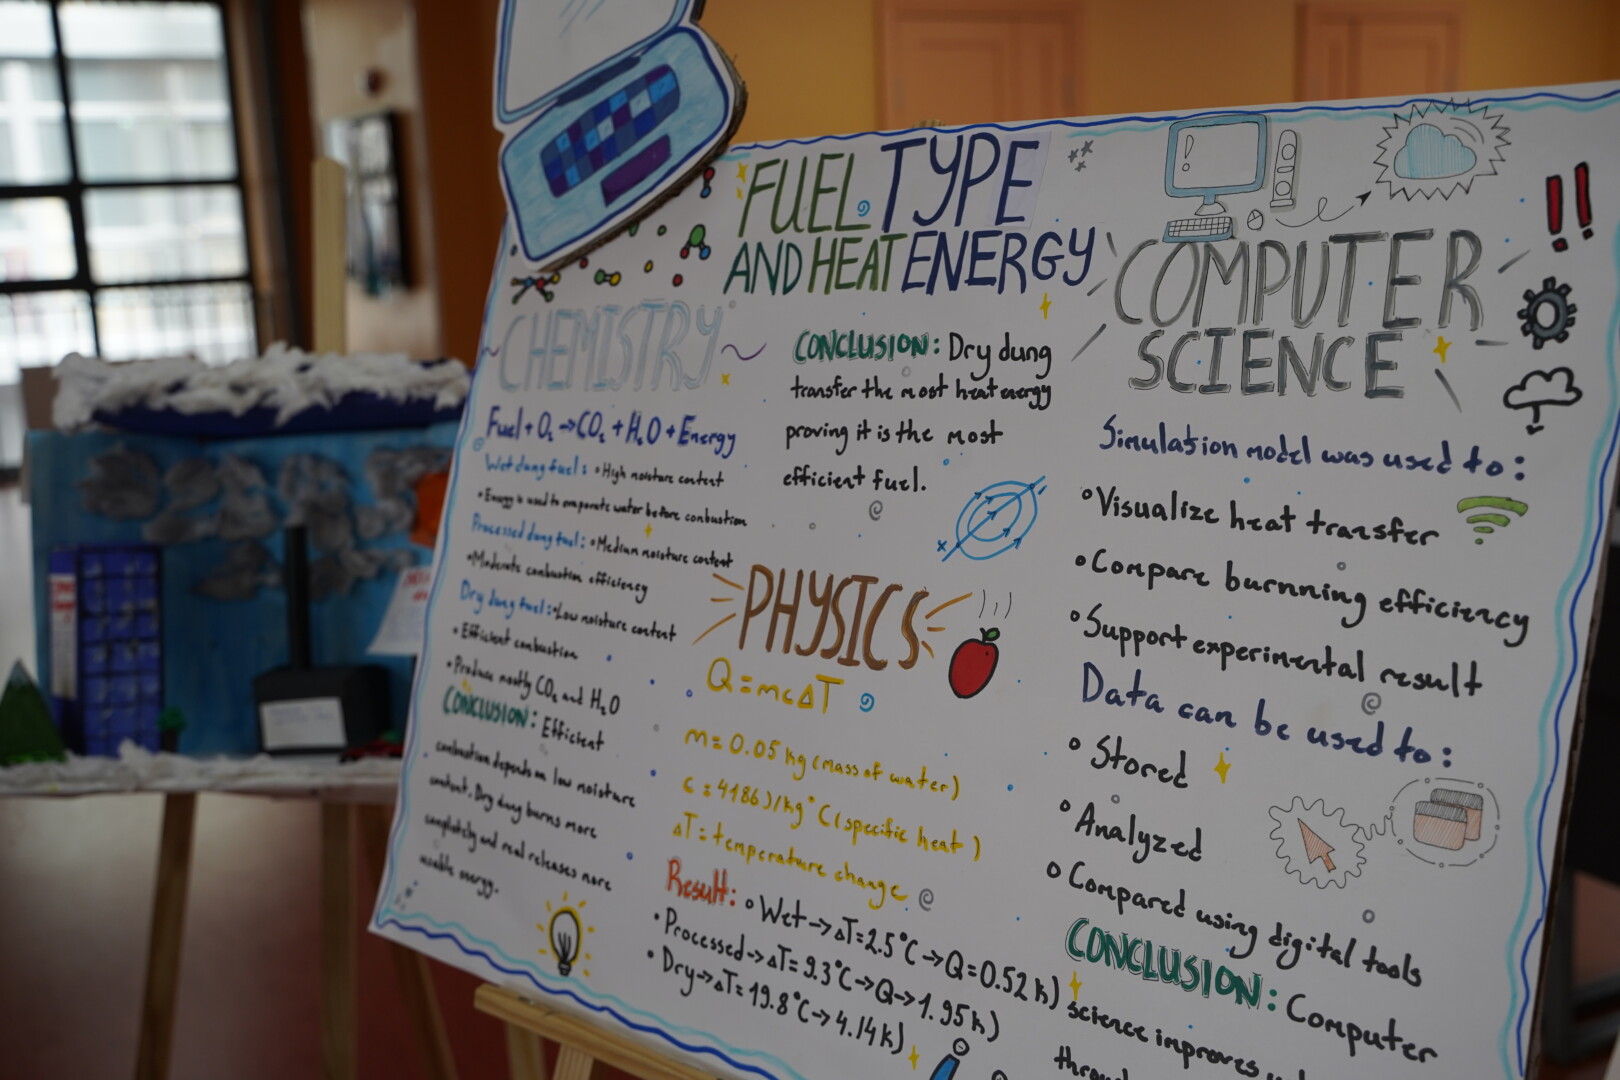 FUEL TYPE
AND HEAT ENERGY
CHEMISTRY
Fuel + O₂ → CO₂ + H₂O + Energy
Wet dung fuel: • High moisture content
• Energy is used to evaporate water before combustion
Processed dung fuel: • Medium moisture content
• Moderate combustion efficiency
Dry dung fuel: • Low moisture content
• Efficient combustion
• Produce mostly CO₂ and H₂O
CONCLUSION: Efficient
combustion depends on low moisture
content. Dry dung burns more
completely and real releases more
usable energy.
CONCLUSION: Dry dung
transfer the most heat energy
proving it is the most
efficient fuel.
PHYSICS
Q = mcΔT
m = 0.05 kg (mass of water)
c = 4186 J/kg°C (specific heat)
ΔT = temperature change
Result: • Wet → ΔT = 2.5°C → Q = 0.52 kJ
• Processed → ΔT = 9.3°C → Q → 1.95 kJ
• Dry → ΔT = 19.8°C → 4.14 kJ
COMPUTER
SCIENCE
Simulation model was used to:
• Visualize heat transfer
• Compare burnning efficiency
• Support experimental result
Data can be used to:
• Stored
• Analyzed
• Compared using digital tools
CONCLUSION: Computer
science improves